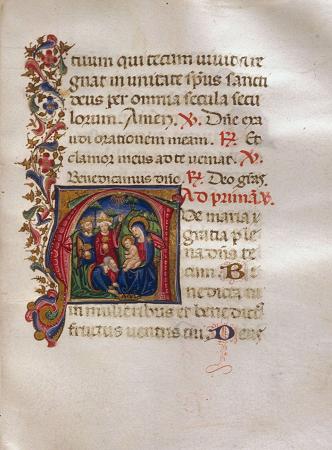 tuum qui tecum vivit & re
gnat in unitate spūs sancti
deus per omnia secula secu
lorum. Amen. ℣. Dñe exa
udi orationem meam. ℟. Et
clamor meus ad te veniat. ℣.
Benedicamus dño. ℟. Deo grās.
Ad primā. ℣.
Ve maria
gratia ple
na dñs te
cum. Be
nedicta tu
in mulieribus et benedict
fructus ventris tui. Deus